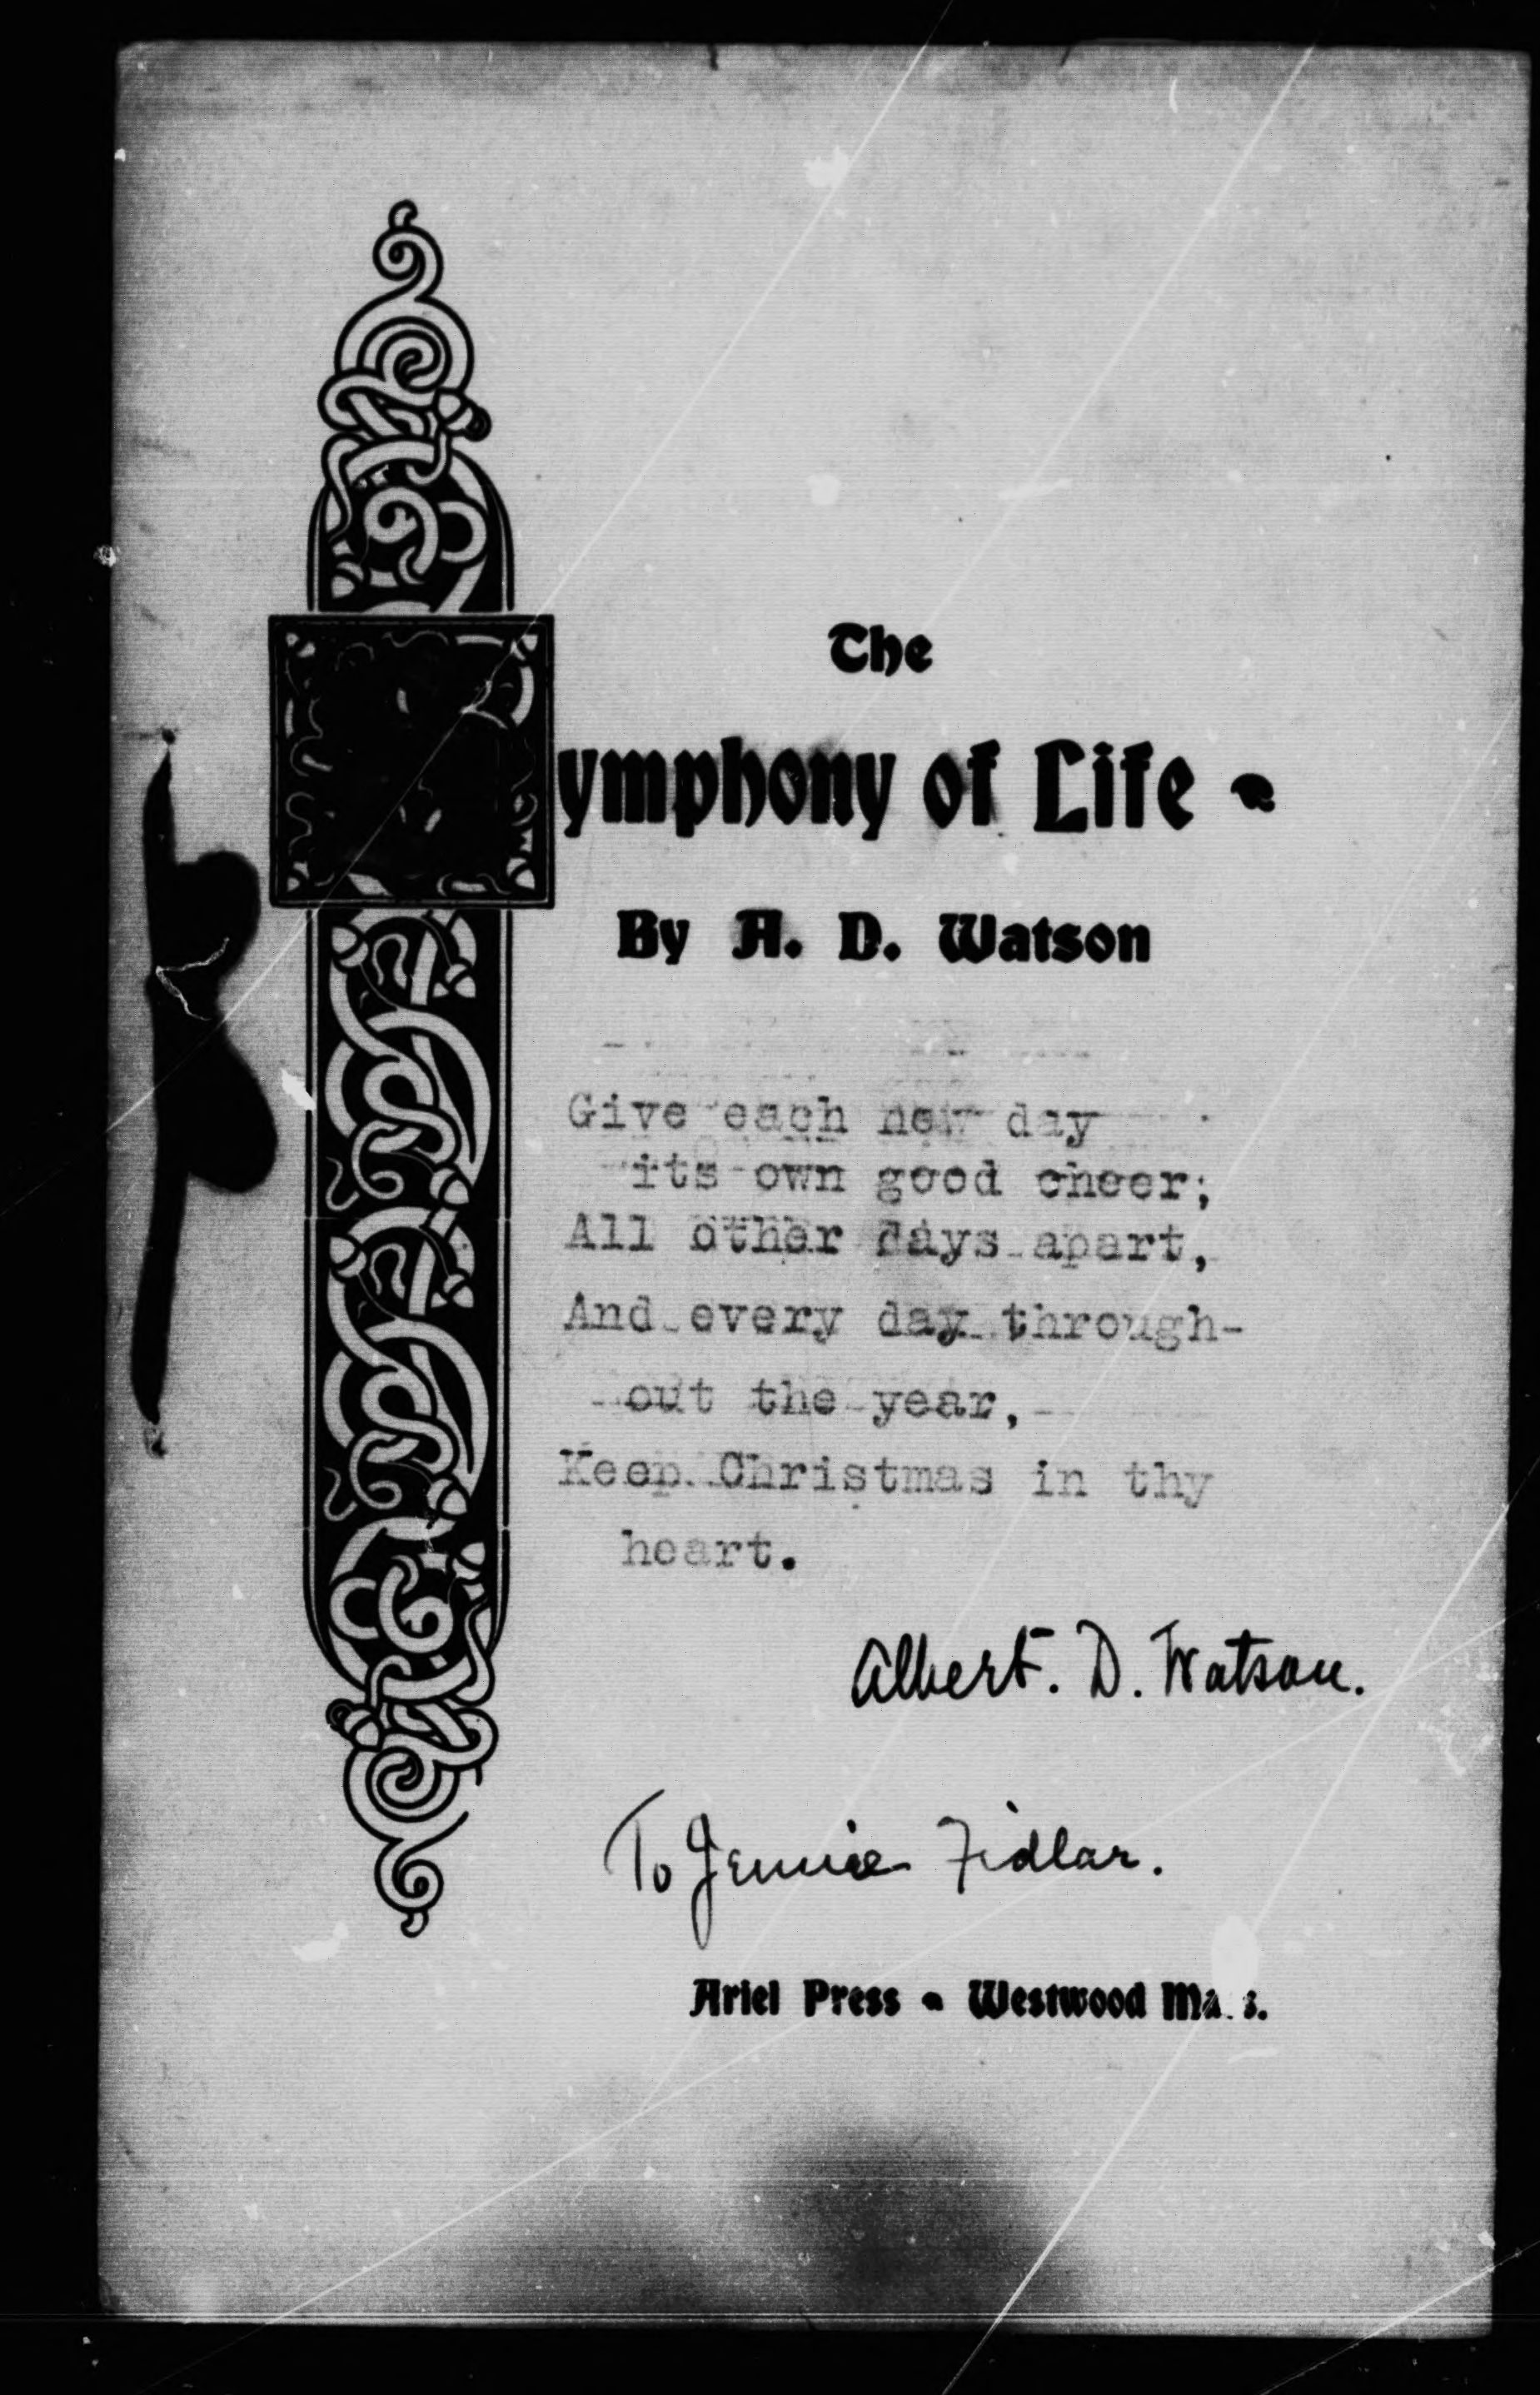 The
ymphony of Life
By A. D. Watson
Give each new day
its own good cheer;
All other days apart,
And every day through-
out the year,
Keep Christmas in thy
heart.
Albert. D. Watson.
To Jennie Fidlar.
Ariel Press - Westwood